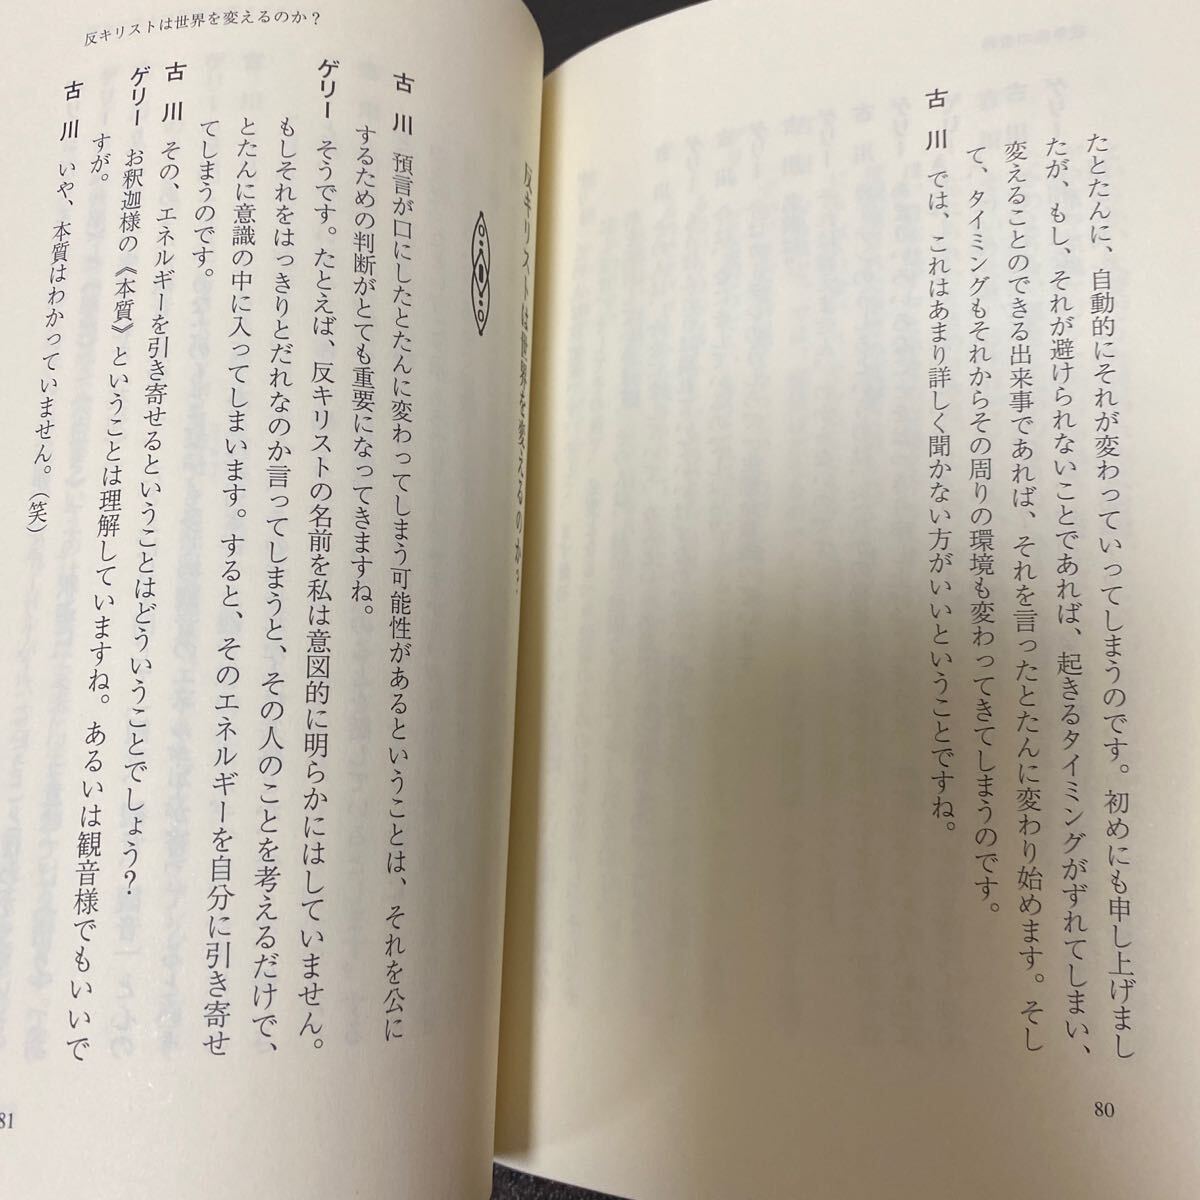 たとたんに、自動的にそれが変わっていってしまうのです。初めにも申し上げまし
たが、もし、それが避けられないことであれば、起きるタイミングがずれてしまい、
変えることのできる出来事であれば、それを言ったとたんに変わり始めます。そし
て、タイミングもそれからその周りの環境も変わってきてしまうのです。
古川 では、これはあまり詳しく聞かない方がいいということですね。
80
反キリストは世界を変えるのか?
反キリストは世界を変えるのか?
古川 預言が口にしたとたんに変わってしまう可能性があるということは、それを公に
するための判断がとても重要になってきますね。
ゲリー そうです。たとえば、反キリストの名前を私は意図的に明らかにはしていません。
もしそれをはっきりとだれなのか言ってしまうと、その人のことを考えるだけで、
とたんに意識の中に入ってしまいます。すると、そのエネルギーを自分に引き寄せ
てしまうのです。
古川 その、エネルギーを引き寄せるということはどういうことでしょう?
ゲリー お釈迦様の《本質》ということは理解していますね。あるいは観音様でもいいで
すが。
古川 いや、本質はわかっていません。(笑)
81